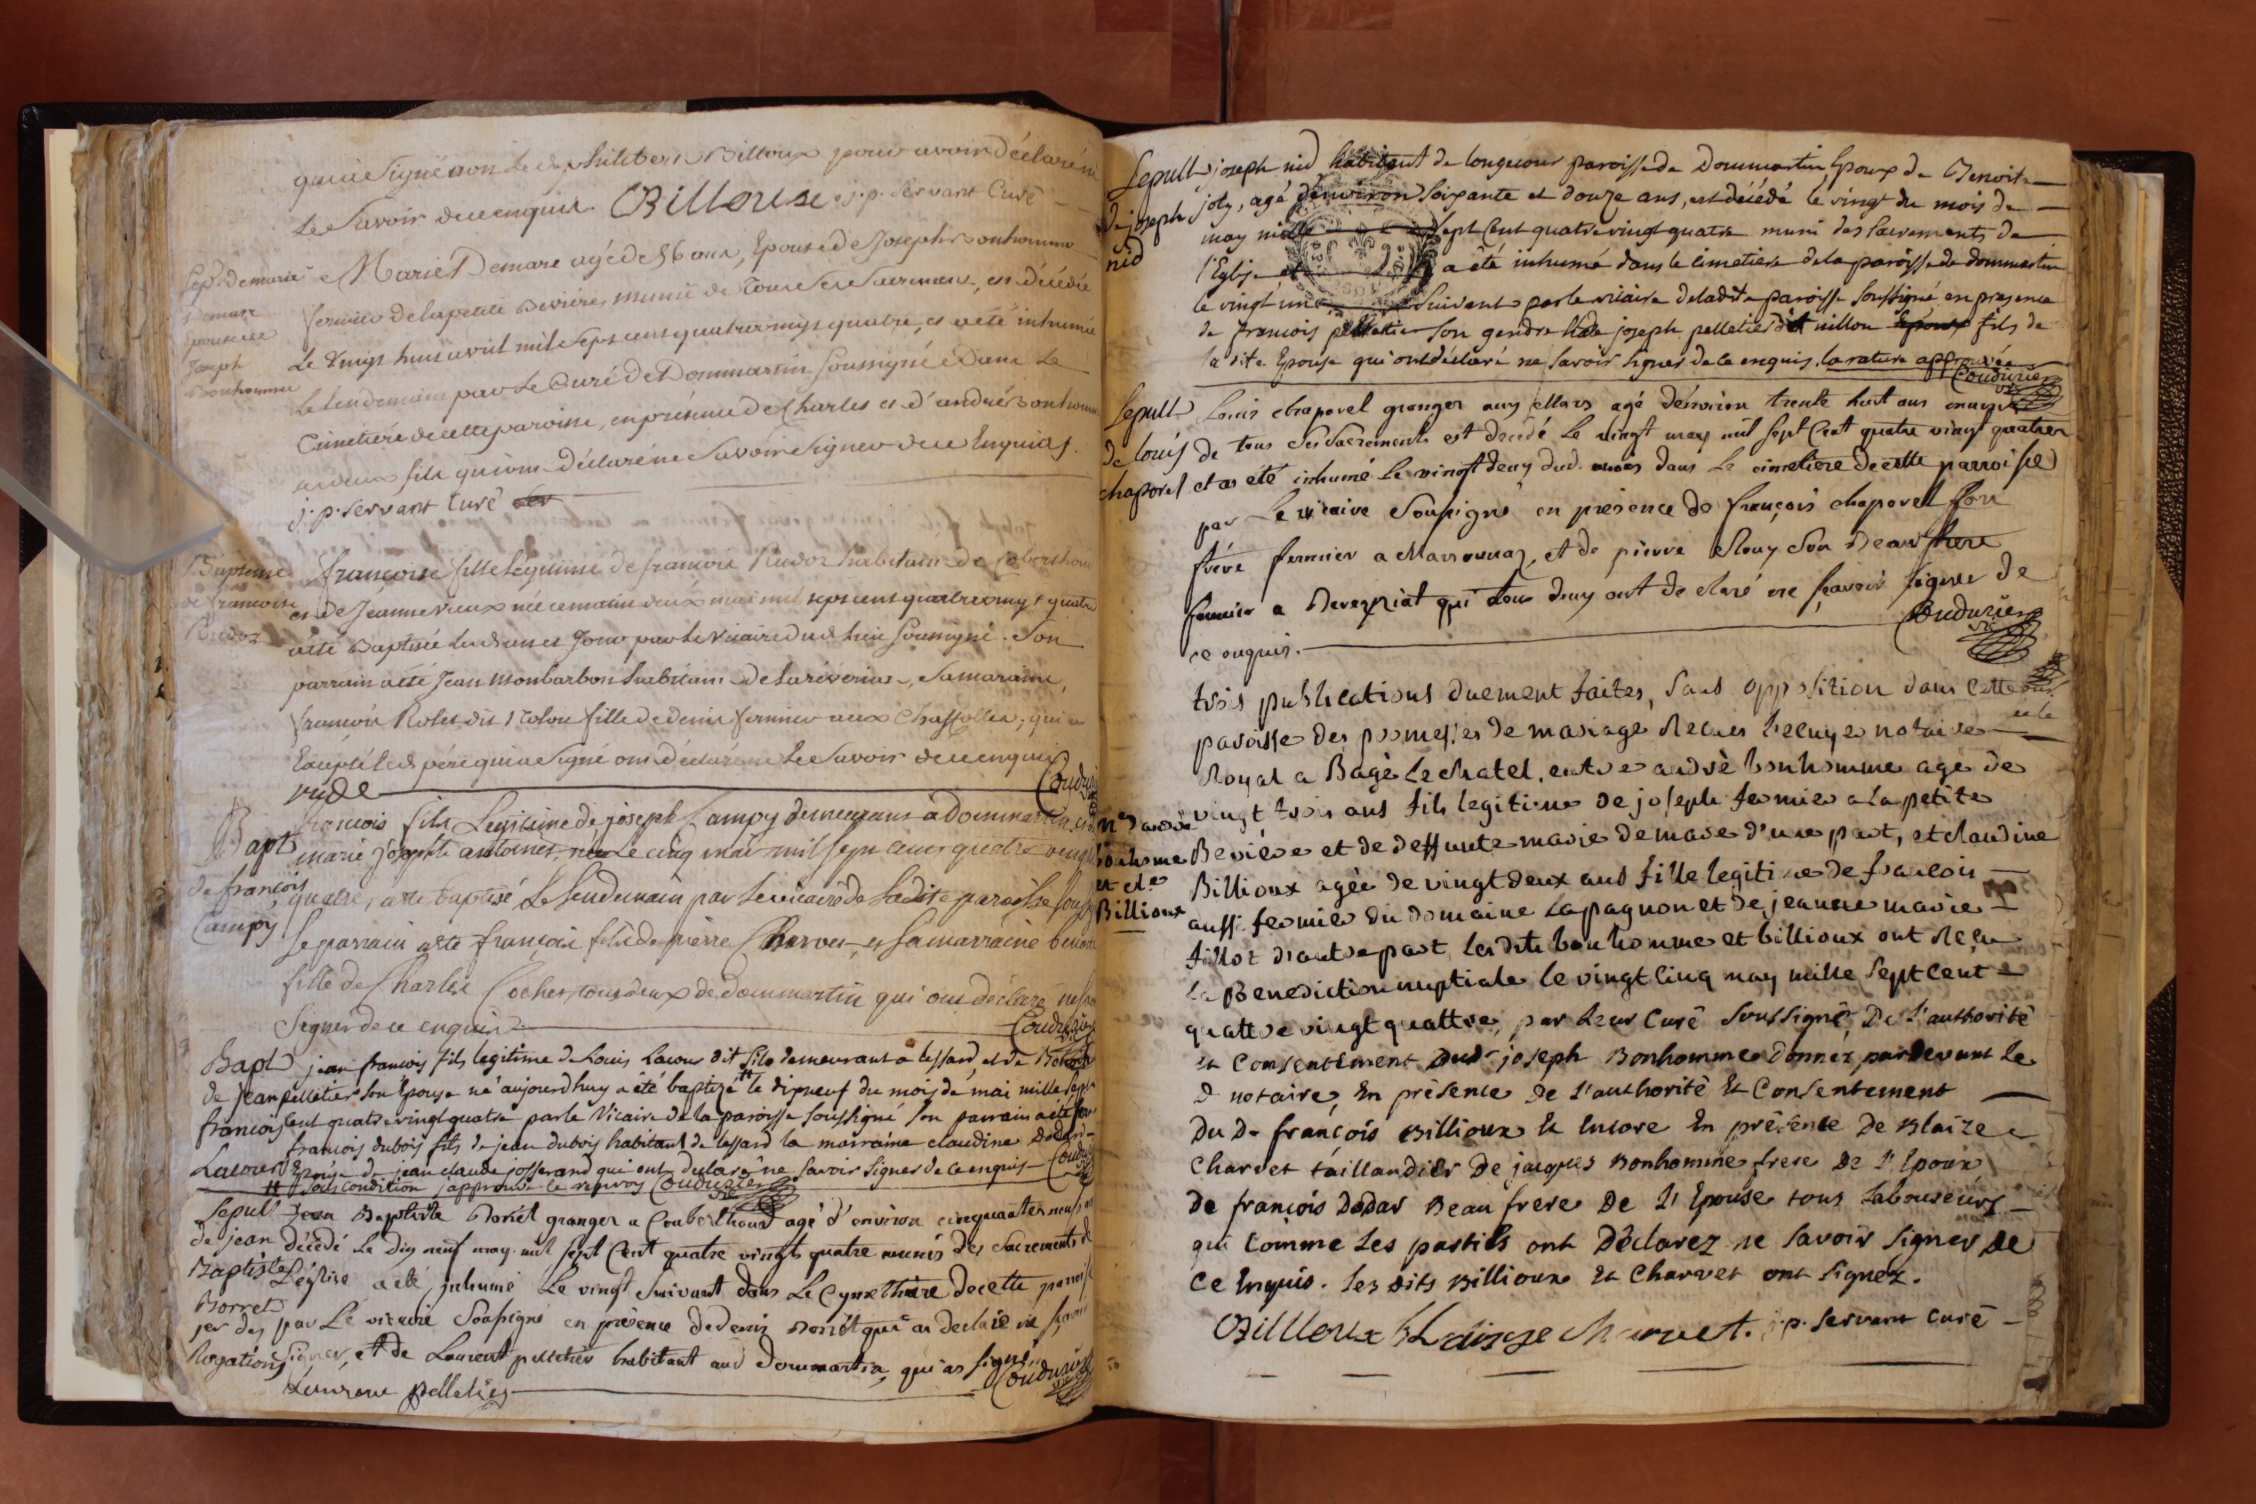 qui a signé non led. philibert Billoux pour avoir déclaré ne
le savoir de ce enquis Billoux j. p. servant Curé
Sep.re de marie
Demare
epouse de
Joseph
Bonhomme
Marie Demare agée de 56 ans, Epouse de Joseph Bonhomme
fermier de la petite Beviére, munie de tous ses Sacremens, est décédée
le vingt huit avril mil sept cent quatre vingt quatre, et a été inhumée
le lendemain par le Curé de Dommartin soussigné Dans le
Cimetiére de cette paroisse, en présence de Charles et d'andré Bonhomme
ses deux fils qui ont déclaré ne savoir signer de ce Enquis.
j. p. servant Curé
Baptême
de francoise
Rudoz
françoise fille légitime de francois Rudoz habitant de
et de Jeanne Vieux née ce matin deux mai mil sept cent quatre vingt quatre
a été Baptisée le même Jour par le Vicaire dud. lieu soussigné. Son
parrain a été Jean Monbarbon habitant de la, sa maraine,
françoise Rolet dit fille de denis fermier aux Chassolles; qui
Excepté led. pére qui a signé ont déclaré ne le savoir de ce enquis
rude Couduri
Bapt.
de françois
Campy
francois fils Legitime de joseph Campy demeurant a Dommartin et
marie josephte antoinet, né Le cinq mai mil sept cent quatre vingt
quatre, a ete baptisé Le lendemain par Le vicaire de La dite paroisse
Le parrain a ete françois fils de pierre Charvet, et sa marraine benoite
fille de Charles Cochet, tous deux de dommartin qui ont déclaré ne
signer de ce enquis Coudurier
Bapt.
de jean
francois
Lacour
jean francois fils legitime de Louis Lacour dit demeurant a Lessard et de Benoite
pelletier son Epouse né aujourd'huy a été baptizé # le dixneuf du mois de mai mille sept
cent quatre vingt quatre par le Vicaire de la paroisse soussigné son parrain a été
francois dubois fils de jean dubois habitant de Lessard la marraine claudine Dodar
Epouse de jean claude josserand qui ont declaré ne savoir signer de ce enquis
# sous condition j'approuve le renvoy Coudurier
Sepult.
de jean
Baptiste
Borret
jer des
Rogations
Jean Baptiste Borret granger a Coberthoud agé d'environ cinquante neuf ans
décédé le dix neuf may mil sept cent quatre vingts quatre munis des Sacrements de
L'église a été inhumé Le vingt suivant dans Le Cymethiere de cette paroisse
par Le vicaire Soussigné en présence de denis Borrét qui a declaré ne sçavoir
signer, et de Laurent pelletier habitant aud dommartin, qui as signé
Laurent pelletier Coudurier
Sepult.
de joseph
nid
joseph nid habitant de longecour paroisse de Dommartin Epoux de Benoite
joly, agé denviron soixante et douze ans, est décédé le vingt du mois de
may mille sept Cent quatre vingt quatre muni des sacrements de
l'Eglise et a été inhumé dans le cimetiere de la paroisse de dommartin
le vingt un suivant par le vicaire de ladite paroisse soussigné en presence
de francois pelletier son gendre et de joseph pelletier dit nillon fils de
la dite Epouse qui ont déclaré ne savoir signer de ce enquis. la rature approuvée
Coudurier
Sepult.
de louis
chaporel
Louis chaporel granger aux ellars agé dénviron trente huit ans muny
de tous ses Sacrements est decedé Le vingt may mil sept Cent quatre vingt quatre
et as été inhumé Le vingt deux dud. mois dans Le cimetiere de cette parroisse
par Le vicaire Soussigné en présence de françois chaporel son
frére fermier a Marsonnaz, et de pierre Louy son Beau frere
fermier a Bereyziat qui tous deux ont declaré ne sçavoir signer de
ce enquis. Coudurier
M.e d'andré
bonhome
et cl.e
Billioux
trois publications duement faites, sans opposition dans Cette
paroisse des promesses de mariage Recues notaire
Royal a Bagé Le chatel, entre andrè bonhomme agé de
vingt trois ans fils legitime de joseph fermier a la petite
Beviére et de deffunte marie demare d'une part, et claudine
Billioux agée de vingt deux ans fille legitime de francois
aussi fermier du domaine Lapagnon et de jeanne marie
fillot d'autre part, Lesdits bonhomme et billioux ont Reçu
la Benediction nuptiale le vingt cinq may mille sept cent
quattre vingt quattre, par Leur Curé soussigné, De l'authorité
et Consentement dud. joseph Bonhomme donnez pardevant le
d. notaire, En présence de l'authorité Et Consentement
du d. françois Billioux Et Encore En présence de Blaize
Charvet taillandier de jacques Bonhomme frere de l'Epoux
de françois Dodar Beau frere de l'Epouse tous Laboureurs
qui Comme Les partiës ont Déclarez ne savoir signer de
ce Enquis. les dits Billioux Et Charvet ont signez.
Billloux bLaisze charvet. j. p. servant curé